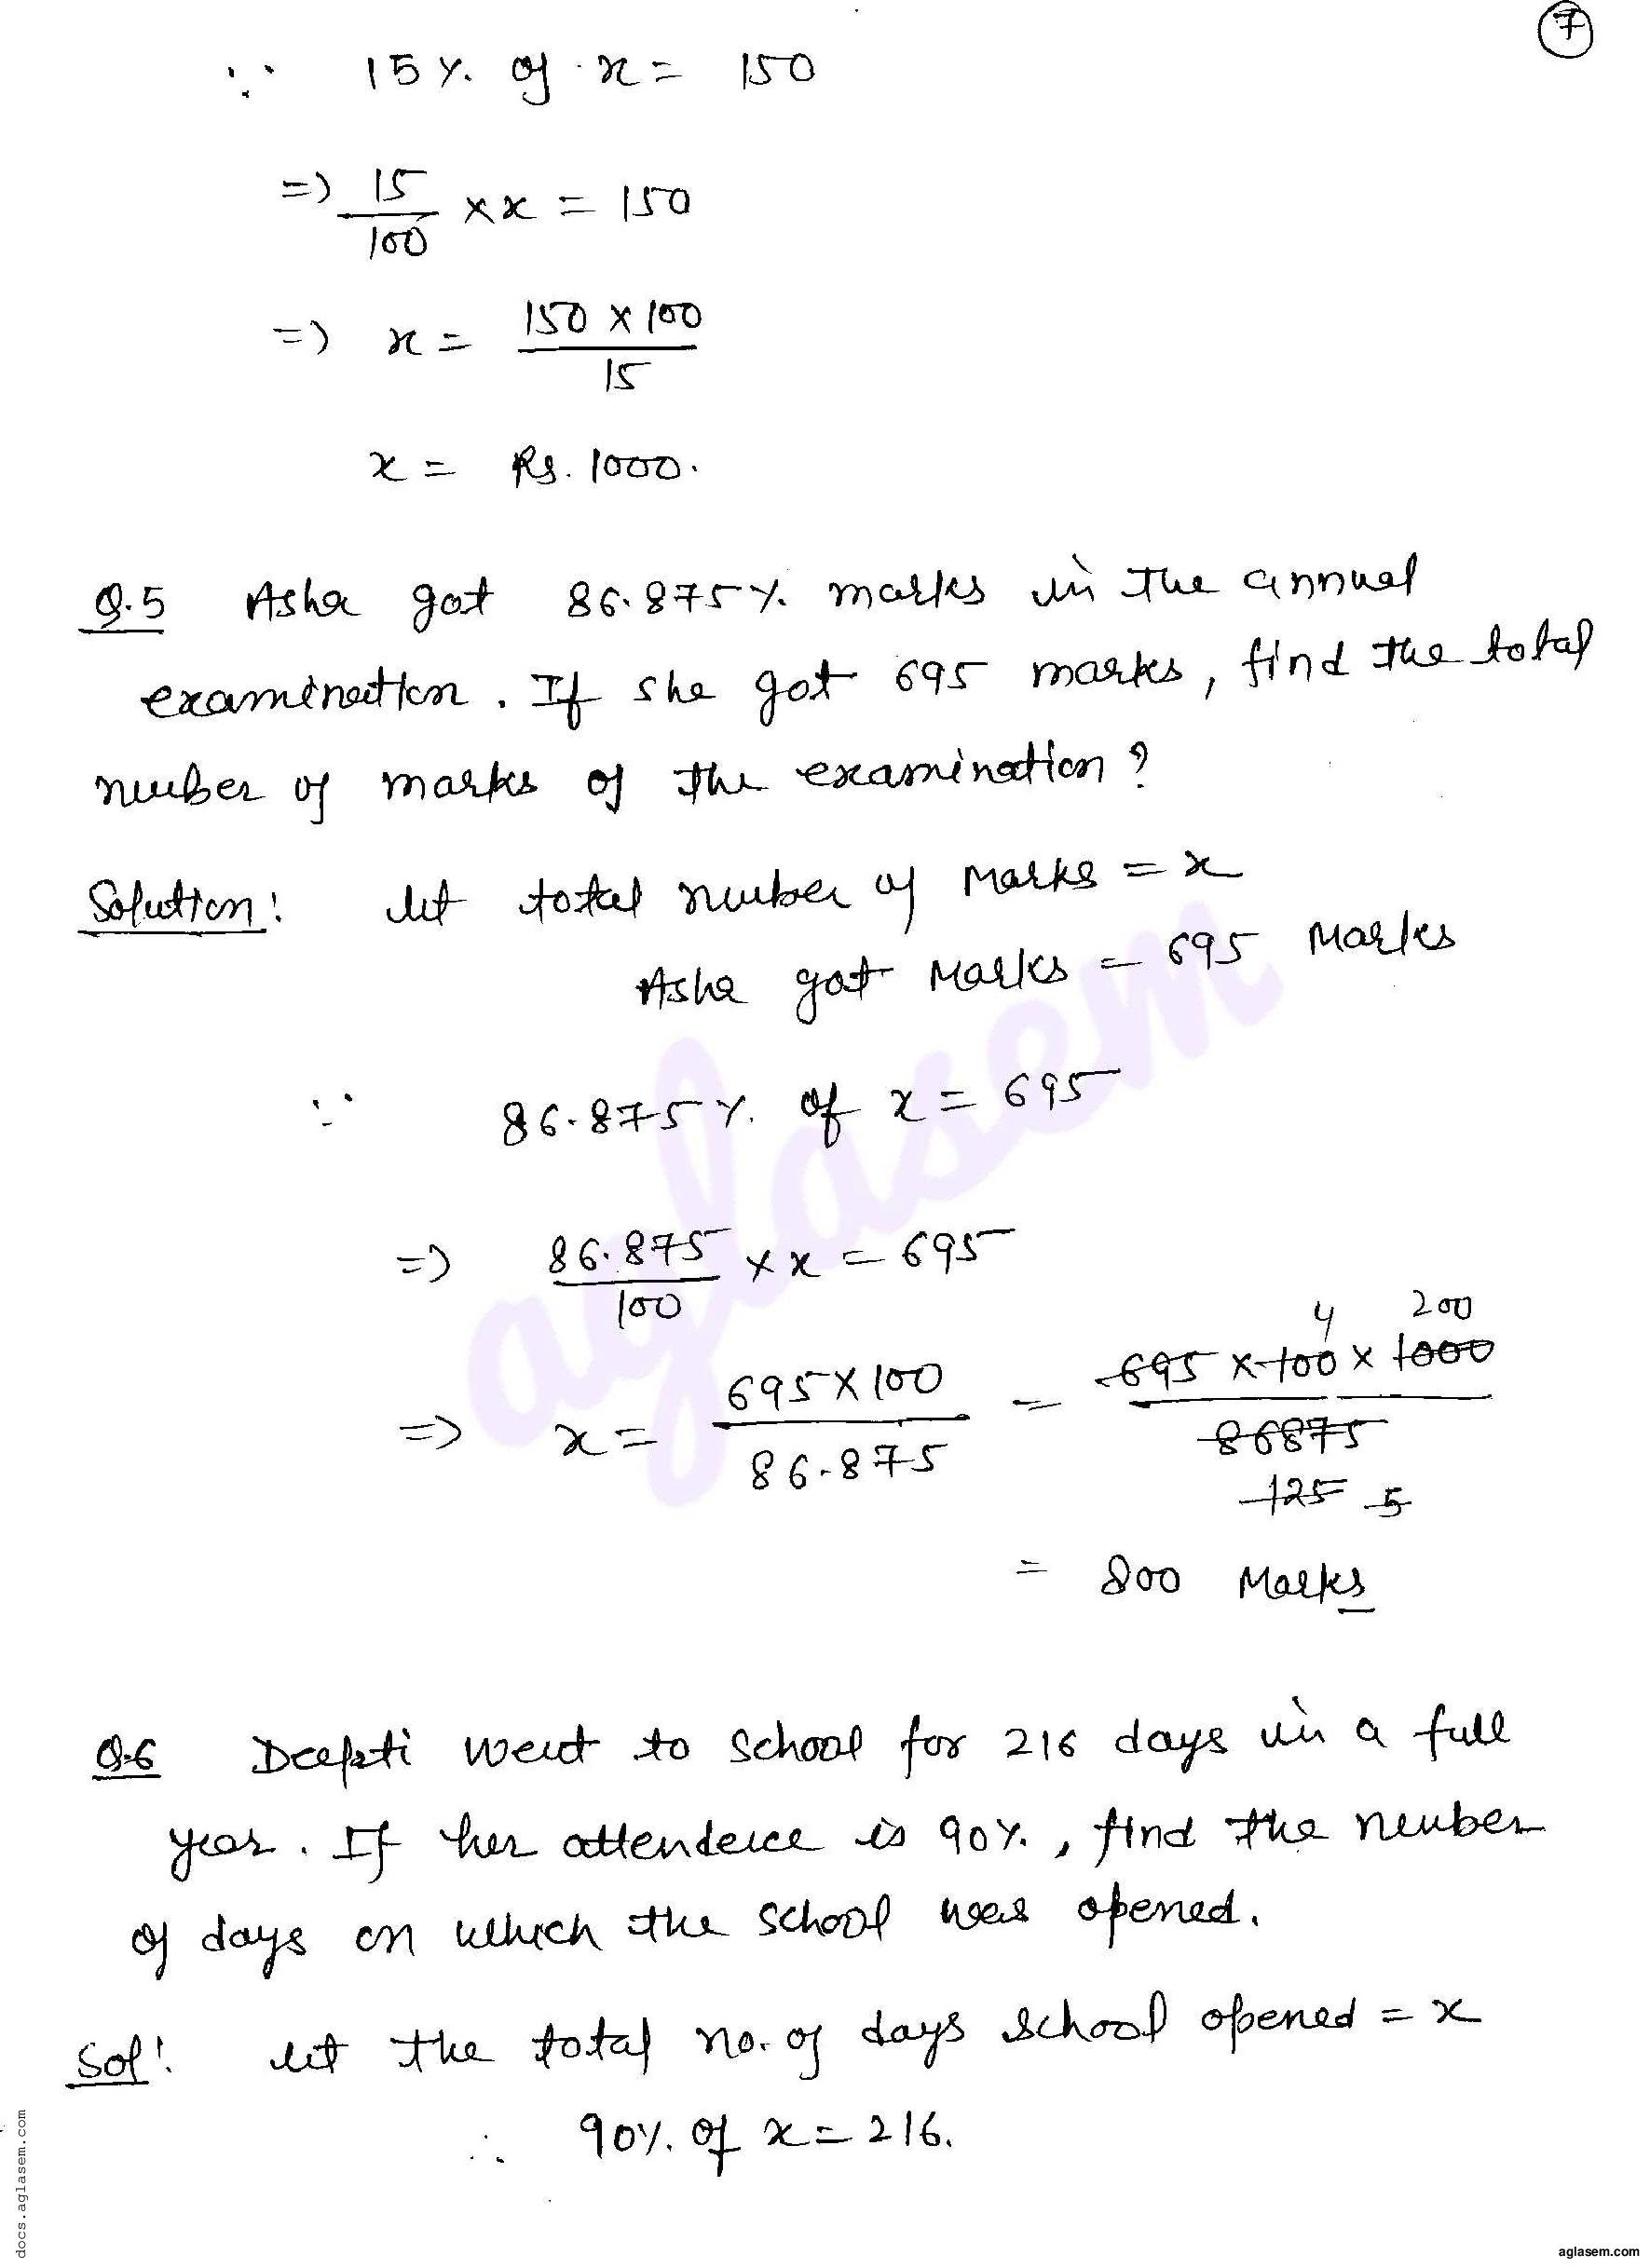 7
∵ 15% of x = 150
=> 15/100 × x = 150
=> x = 150 × 100 / 15
x = Rs. 1000.
Q.5 Asha got 86.875% marks in the annual
examination. If she got 695 marks, find the total
number of marks of the examination?
Solution: let total number of Marks = x
Asha got Marks = 695 Marks
∵ 86.875% of x = 695
=> 86.875/100 × x = 695
4 200
=> x = 695 × 100 / 86.875 = 695 × 100 × 1000 / 86875
125 5
= 800 Marks
Q.6 Deepti went to school for 216 days in a full
year. If her attendence is 90%, find the number
of days on which the school was opened.
Sol: let the total no. of days school opened = x
∴ 90% of x = 216.
aglasem
docs.aglasem.com
aglasem.com